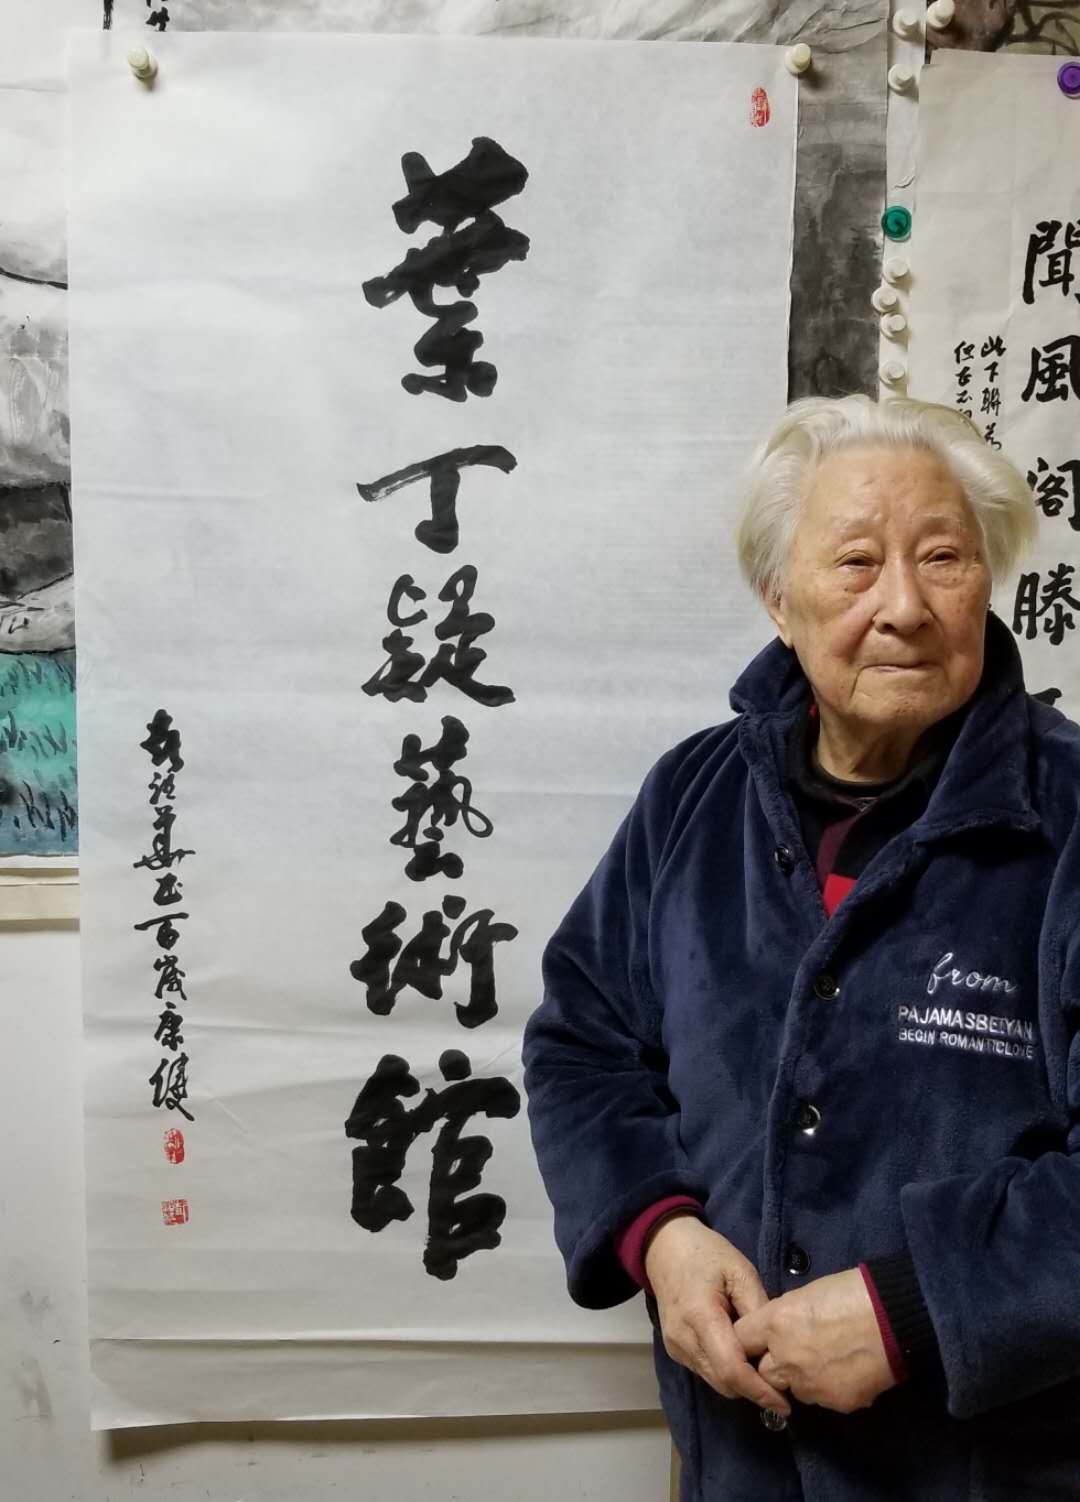 葉丁疑藝術館
華书百歲康健
聞風阁滕
此下聯
但在不
from
PAJAMASBEIYAN
BEGIN ROMANTICLOVE